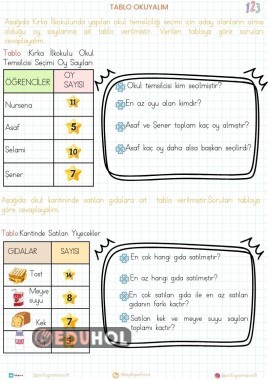 TABLO OKUYALIM
123
Aşağıda Kırka İlkokulunda yapılan okul temsilciliği seçimi için aday olanların almış
olduğu oy sayılarına ait tablo verilmiştir. Verilen tabloya göre soruları
cevaplayalım.
Tablo: Kırka İlkokulu Okul
Temsilcisi Seçimi Oy Sayıları
ÖĞRENCİLER
OY SAYISI
Nursena 11
Asaf 5
Selami 10
Şener 7
Okul temsilcisi kim seçilmiştir?
En az oyu alan kimdir?
Asaf ve Şener toplam kaç oy almıştır?
Asaf kaç oy daha alsa başkan seçilirdi?
Aşağıda okul kantininde satılan gıdalara ait tablo verilmiştir.Soruları tabloya
göre cevaplayalım.
Tablo:Kantinde Satılan Yiyecekler
GIDALAR SAYISI
Tost 14
Meyve suyu 8
Kek 7
En çok hangi gıda satılmıştır?
En az hangi gıda satılmıştır?
En çok satılan gıda ile en az satılan
gıdanın farkı kaçtır?
Satılan kek ve meyve suyu sayıları
toplamı kaçtır?
EDUHOL